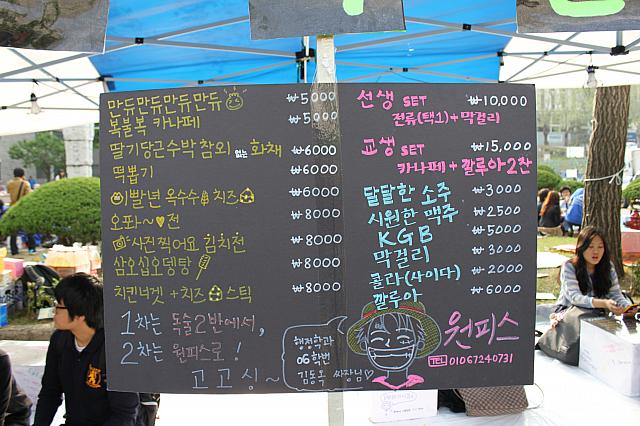 만듀만듀만듀만듀 ₩5000
복불복 카나페 ₩5000
딸기당근수박참외 없는 화채 ₩6000
떡뽑기 ₩6000
이빨년 옥수수 치즈 ₩6000
오파~♥전 ₩8000
사진찍어요 김치전 ₩8000
삼오십오뎅탕 ₩8000
치킨너겟 + 치즈스틱 ₩8000
1차는 독술2반에서,
2차는 원피스로!
고고싱~
선생 SET ₩10,000
전류(택1)+막걸리
교생 SET ₩15,000
카나페+깔루아2잔
달달한 소주 ₩3000
시원한 맥주 ₩2500
KGB ₩5000
막걸리 ₩3000
콜라(사이다) ₩2000
깔루아 ₩6000
행정학과
06학번
김동욱 싸장님♡
원피스
TEL 01067240731